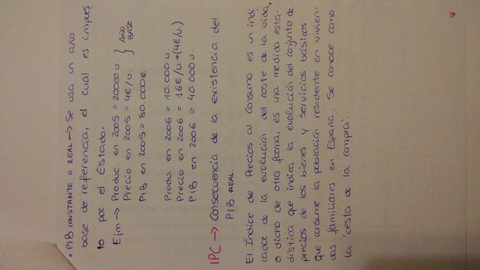 • PIB CONSTANTE O REAL → Se usa un año
base de referencia, el cual es impues
to por el Estado.
Ejm → Produc. en 2005 = 20000 u. } AÑO
Precio en 2005 = 4€/u. } BASE
PIB en 2005 = 80.000€
Produc en 2006 = 10.000 u.
Precio en 2006 = 16€/u → (4€/u)
PIB en 2006 = 40.000 u.
IPC → Consecuencia de la existencia del
PIB REAL.
El Indice de Precios al Consumo es un indi
cador de la evolución del coste de la vida,
o dicho de otra forma, es una medida esta-
distica que indica la evolución del conjunto de
precios de los bienes y servicios básicos
que consume la población residente en vivien-
das familiares en España. Se conoce como
la 'cesta de la compra'.
7